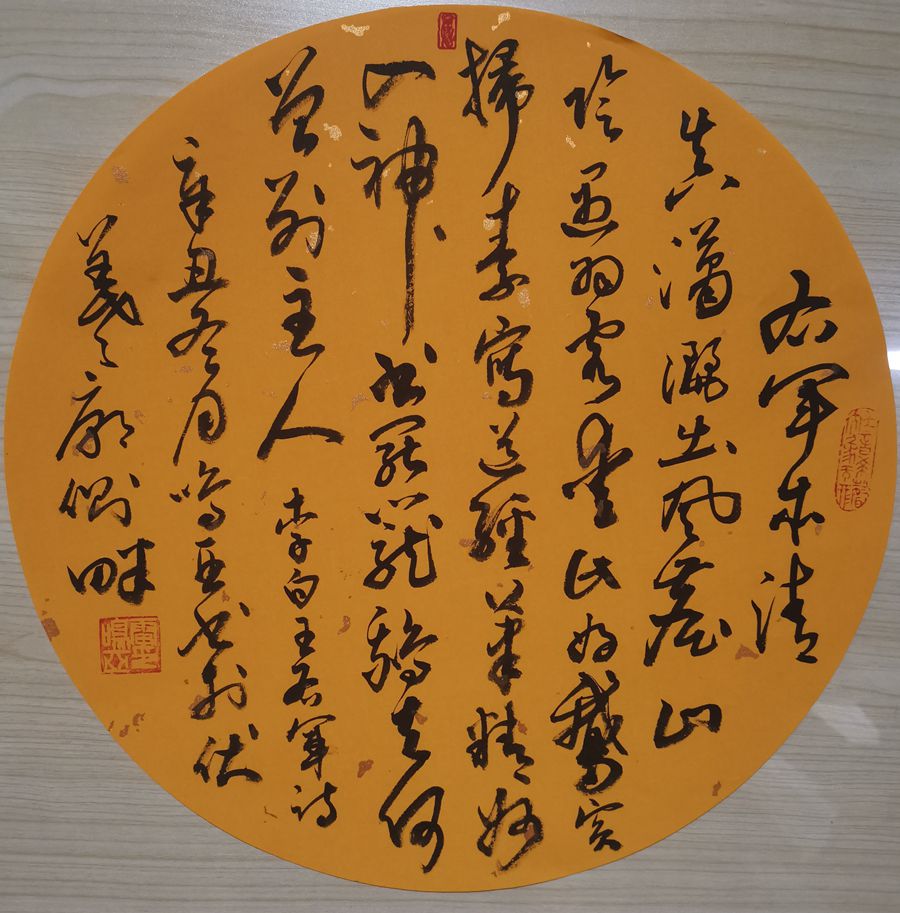 右軍本清
真瀟灑出風塵山
陰遇羽客愛此好鵝賓
掃素寫道經筆精妙
入神書罷籠鵝去何
曾別主人 李白王右軍詩
辛丑冬月鳴亞書於伏
羲之廟側畔